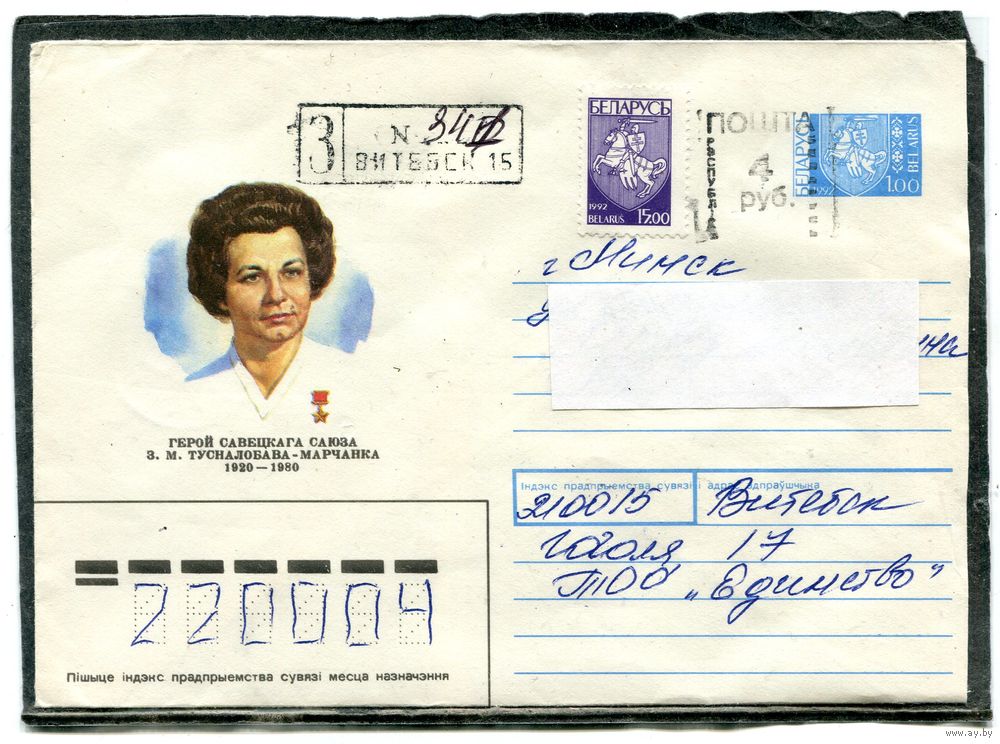 З
N
ВИТЕБСК 15
БЕЛАРУСЬ
1992
BELARUS 15.00
ПОШТА
рэспубліка
4
руб.
БЕЛАРУСЬ
1992
1.00
BELARUS
г Минск
ина
ГЕРОЙ САВЕЦКАГА САЮЗА
З. М. ТУСНАЛОБАВА-МАРЧАНКА
1920—1980
Індэкс прадпрыемства сувязі і адрас адпраўшчыка
210015 Витебск
Гоголя 17
ТОО „Единство"
220004
Пішыце індэкс прадпрыемства сувязі месца назначэння
www.ay.by